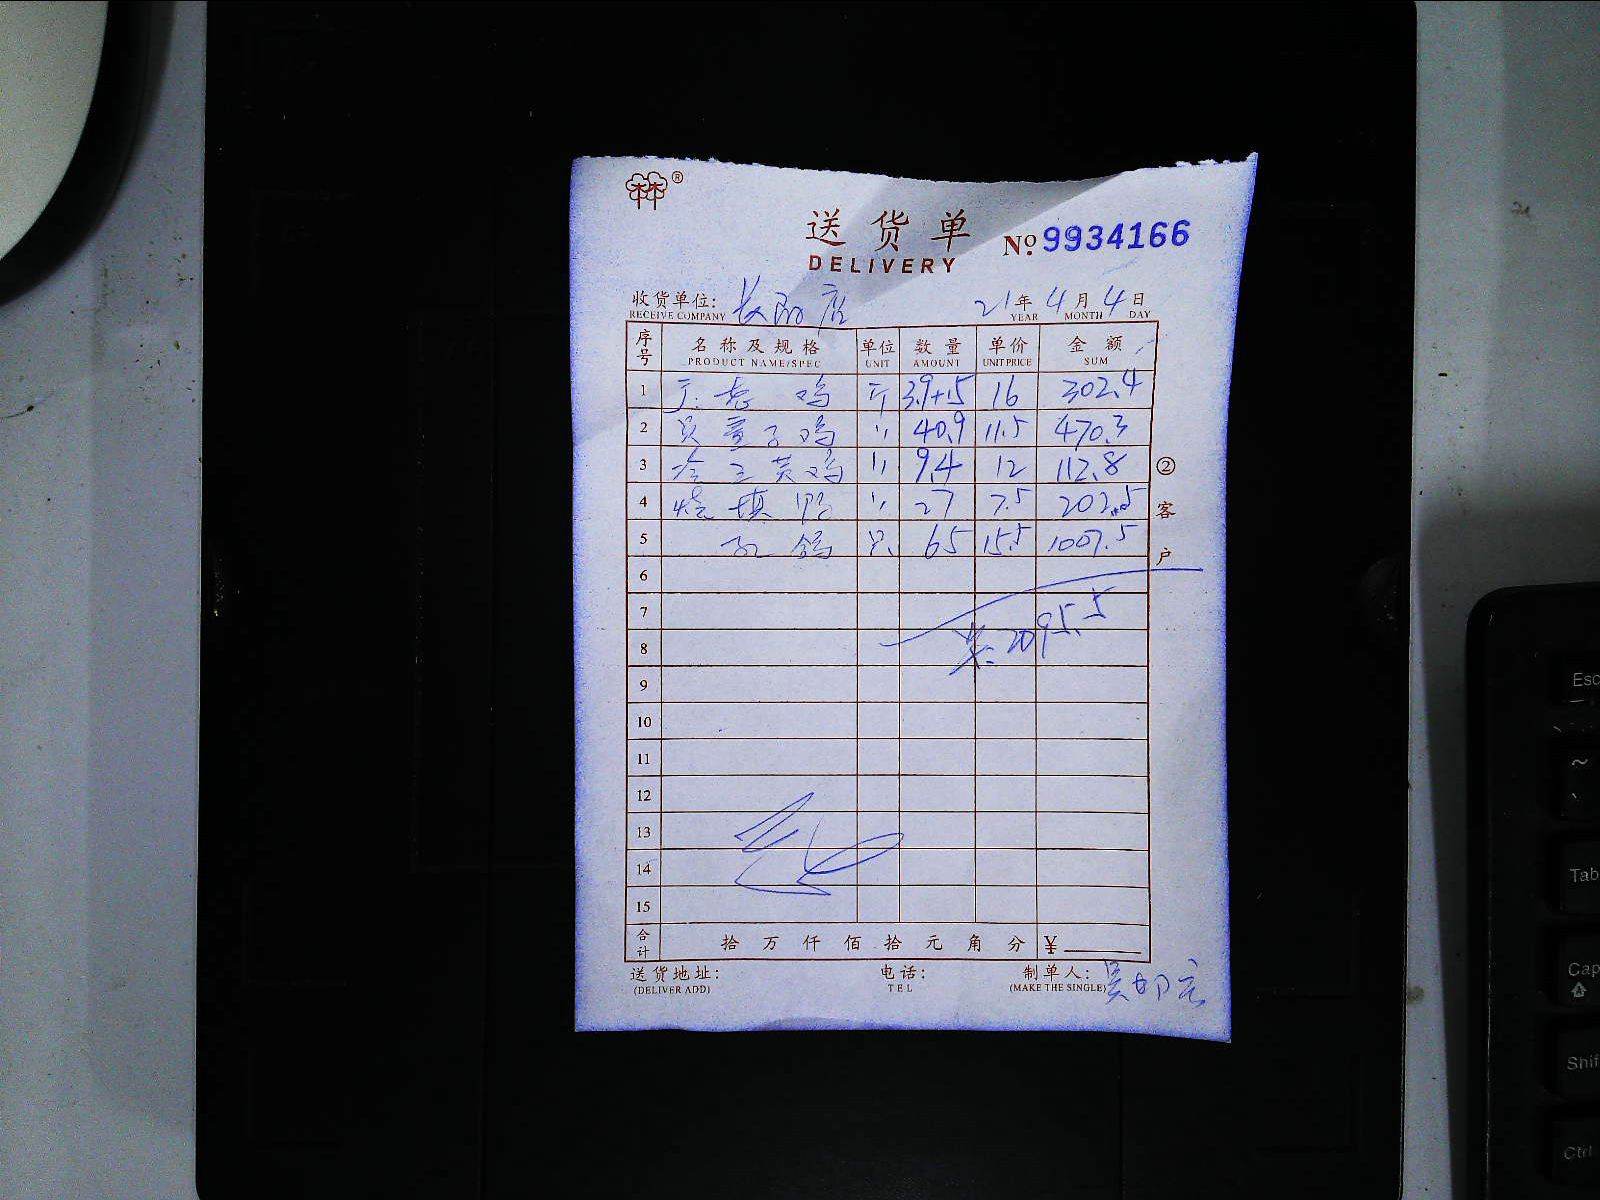 林®
送货单
DELIVERY
№ 9934166
收货单位: 店 21年4月4日
RECEIVE COMPANY YEAR MONTH DAY
序号 名称及规格 单位 数量 单价 金额
PRODUCT NAME/SPEC UNIT AMOUNT UNIT PRICE SUM
1 老鸡 斤 3.9+15 16 302.4
2 童子鸡 〃 40.9 11.5 470.3
3 黄鸡 〃 9.4 12 112.8
4 烧填鸭 〃 27 7.5 202.5
5 鸽 只 65 15.5 1007.5
6
7
8 2095.5
9
10
11
12
13
14
15
合计 拾 万 仟 佰 拾 元 角 分 ¥
②客户
送货地址: 电话: 制单人: 吴
(DELIVER ADD) TEL (MAKE THE SINGLE)
Esc
~
Tab
Cap
Shif
Ctrl